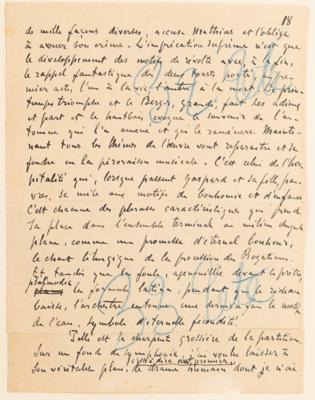 18
de mille façons diverses, accuse Mathias et l'oblige
à avouer son crime. L'imprécation suprême n'est que
le développement des motifs de révolte avec, à la fin,
le rappel fantastique des deux toasts portés au premier
acte, l'un à la vie l'autre à la mort. Le printemps
triomphe et le Berger, grandi, fait ses adieux
et part et le hautbois évoque le souvenir de l'automne
qui l'a amené et qui le ramènera. Maintenant
tous les thèmes de l'œuvre vont reparaître et se
fondre en la péroraison musicale. C'est celui de l'hospitalité
qui, lorsque passent Gaspard et sa fille,
se mêle aux motifs de bonhomie et d'enfance
C'est chacune des phrases caractéristiques qui prend
sa place dans l'ensemble terminal au milieu duquel
plane, comme une promesse d'éternel bonheur,
le chant liturgique de la procession des Rogations.
Et, tandis que la foule, agenouillée devant le prêtre
psalmodie la formule latine, pendant que le rideau
baisse, l'orchestre entonne une dernière fois le motif
de l'eau, symbole d'éternelle fécondité.
Telle est la charpente grossière de la partition.
Sur un fond de symphonie, j'ai voulu laisser à
son véritable plan, le drame humain dont je n'ai